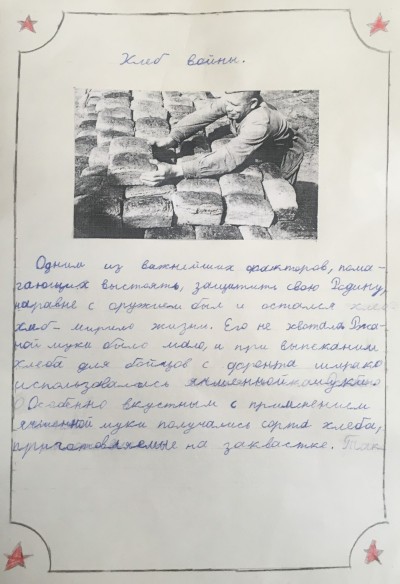 Хлеб войны.
Одним из важнейших факторов, пома-
гающих выстоять, защитить свою Родину,
наравне с оружием был и остался хлеб
хлеб - мирило жизни. Его не хватало. Ржа-
ной муки было мало, и при выпекании
хлеба для бойцов с фронта широко
использовалась ячменной
Особенно вкустным с применением
ячменной муки получались сорта хлеба,
приготовляемые на заквастке. Так